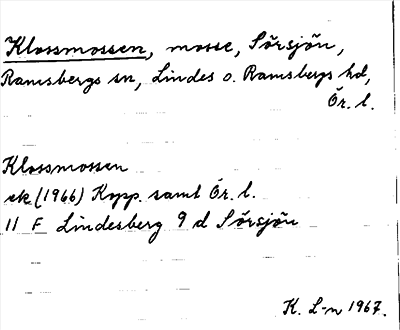 Klossmossen, mosse, Sörsjön,
Ramsbergs sn, Lindes o. Ramsbergs hd,
Ör. l.
Klossmossen
ek. (1966) Kopp. samt Ör. l.
11 F Lindesberg 9 d Sörsjön
K. L-n 1967.